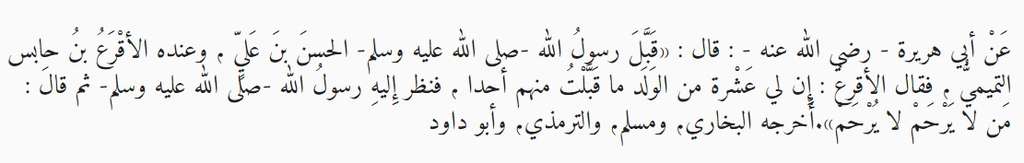 عَنْ أبي هريرة - رضي الله عنه - : قال : «قَبَّلَ رسولُ الله -صلى الله عليه وسلم- الحسنَ بنَ عَليٍّ ، وعنده الأقْرَعُ بنُ حابس
التميميُّ ، فقال الأقرعُ : إِن لي عَشْرة من الوَلَد ما قَبَّلْتُ منهم أحدا ، فنظر إِليهِ رسولُ الله -صلى الله عليه وسلم- ثم قال :
مَن لا يَرْحَمْ لا يُرْحَمْ».أخرجه البخاري، ومسلم، والترمذي، وأبو داود